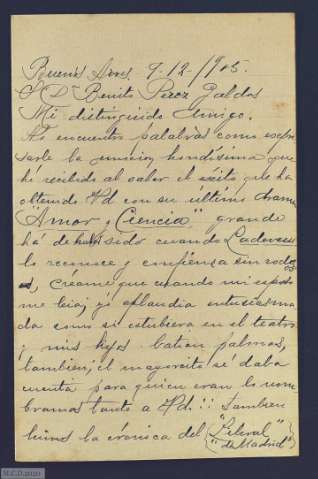 Buenos Ares. 9-12-/905.
S. D. Benito Perez Galdos
Mi distinguido Amigo.
No encuentro palabras como expre
sarle la emocion hondísima que
hé recibido al saber el éxito que ha
obtenido Vd con su último drama
"Amor y Ciencia" grande
há de haber sido cuando
lo reconoce y confiensa sin rodeo
s, créame que cuando mi esposo
me leia, yó aplaudia entusiasma
da como si estubiera en el teatro
y mis hijos batian palmas,
tambien; el mayorcito sé daba
cuenta para quien eran lo nom
bramos tanto a Vd.!! Tambien
leimos la crónica del "Liberal"
"de Madrid"